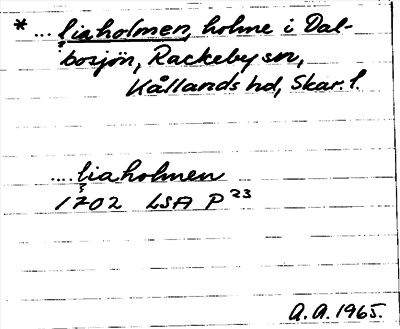 * ... liaholmen, holme i Dal-
bosjön, Rackeby sn,
Kållands hd, Skar. l.
.... liaholmen
1702 LSA P 23
A.A. 1965.